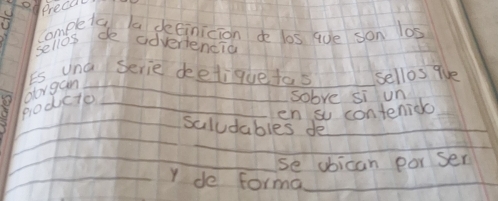 completa la definicion de los que son los
sellos de advertencia
Es una serie de etiquetas ______ sellos que
otorgan ______ sobre si un
producto ______ en su contenido
______ saludables de ______
______ se ubican por ser
______ y de forma ______